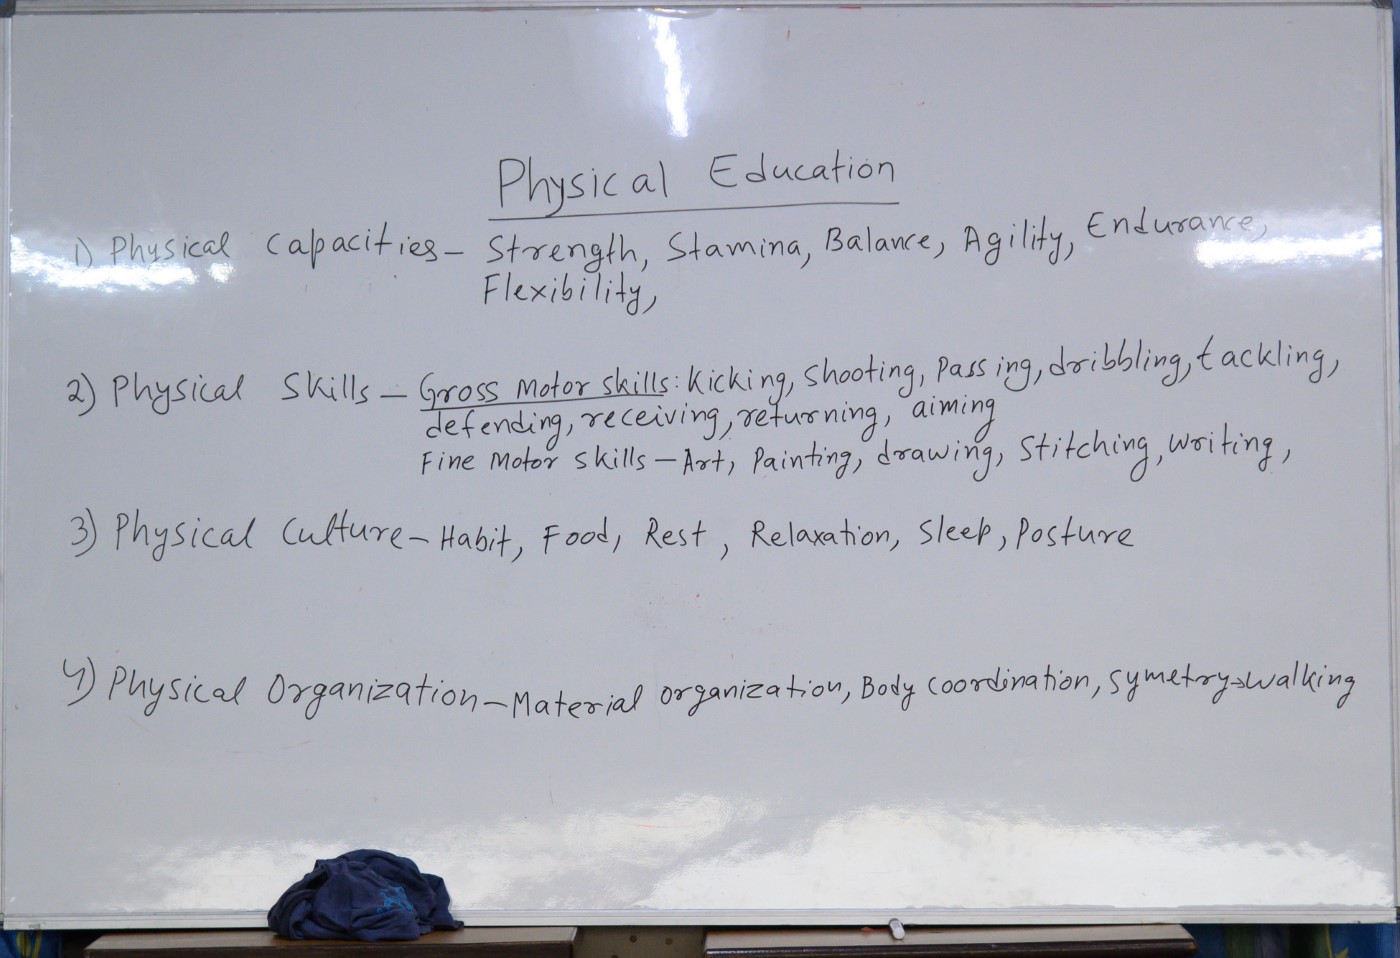 Physical Education
1) Physical Capacities - Strength, Stamina, Balance, Agility, Endurance,
Flexibility,
2) Physical Skills - Gross Motor skills: Kicking, Shooting, Passing, dribbling, tackling,
defending, receiving, returning, aiming
Fine Motor skills - Art, Painting, drawing, Stitching, writing,
3) Physical Culture - Habit, Food, Rest, Relaxation, Sleep, Posture
4) Physical Organization - Material organization, Body Coordination, Symetry→walking